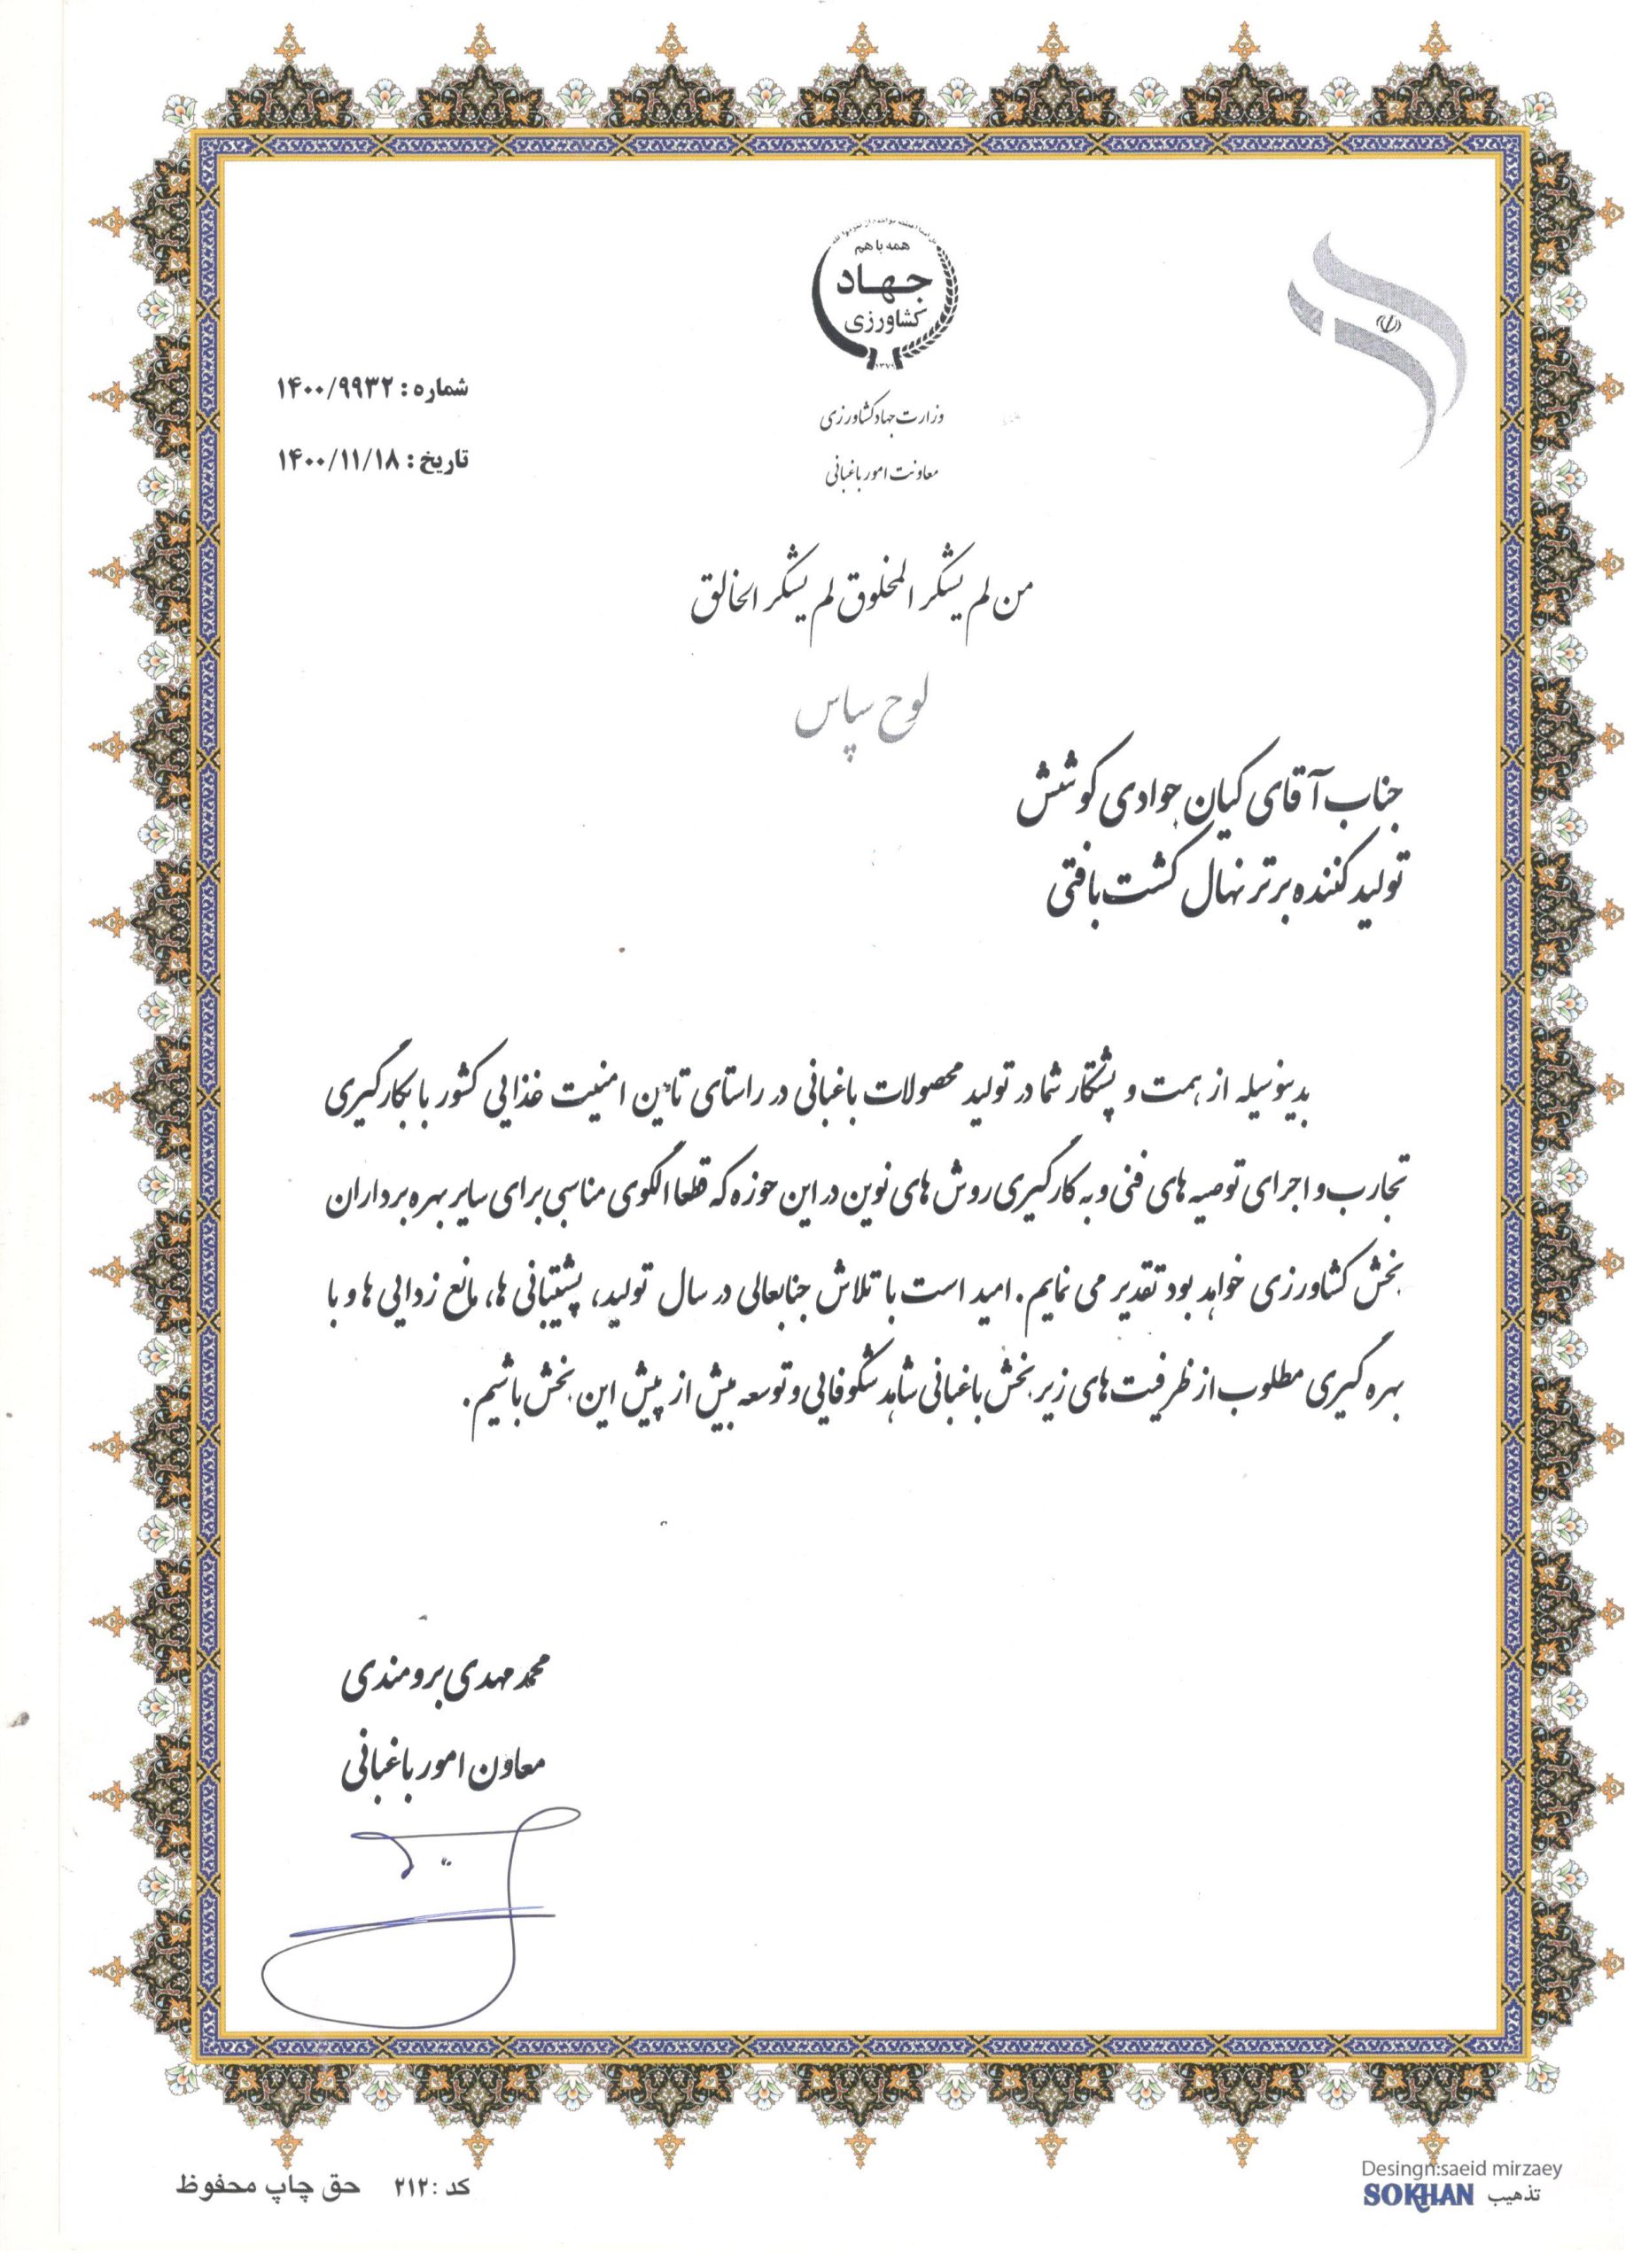 همه با هم
جهاد
کشاورزی
۱۳۷۹
وزارت جهاد کشاورزی
معاونت امور باغبانی
شماره : ۱۴۰۰/۹۹۳۲
تاریخ : ۱۴۰۰/۱۱/۱۸
من لم یشکر المخلوق لم یشکر الخالق
لوح سپاس
جناب آقای کیان جوادی کوشش
تولید کننده برتر نهال کشت بافتی
بدینوسیله از همت و پشتکار شما در تولید محصولات باغبانی در راستای تامین امنیت غذایی کشور با بکارگیری
تجارب و اجرای توصیه های فنی و به کارگیری روش های نوین در این حوزه که قطعا الگوی مناسبی برای سایر بهره برداران
بخش کشاورزی خواهد بود تقدیر می نمایم. امید است با تلاش جنابعالی در سال تولید، پشتیبانی ها، مانع زدایی ها و با
بهره گیری مطلوب از ظرفیت های زیر بخش باغبانی شاهد شکوفایی و توسعه بیش از پیش این بخش باشیم.
محمد مهدی برومندی
معاون امور باغبانی
کد : ۲۱۲ حق چاپ محفوظ
Desingn:saeid mirzaey
تذهیب SOKHAN